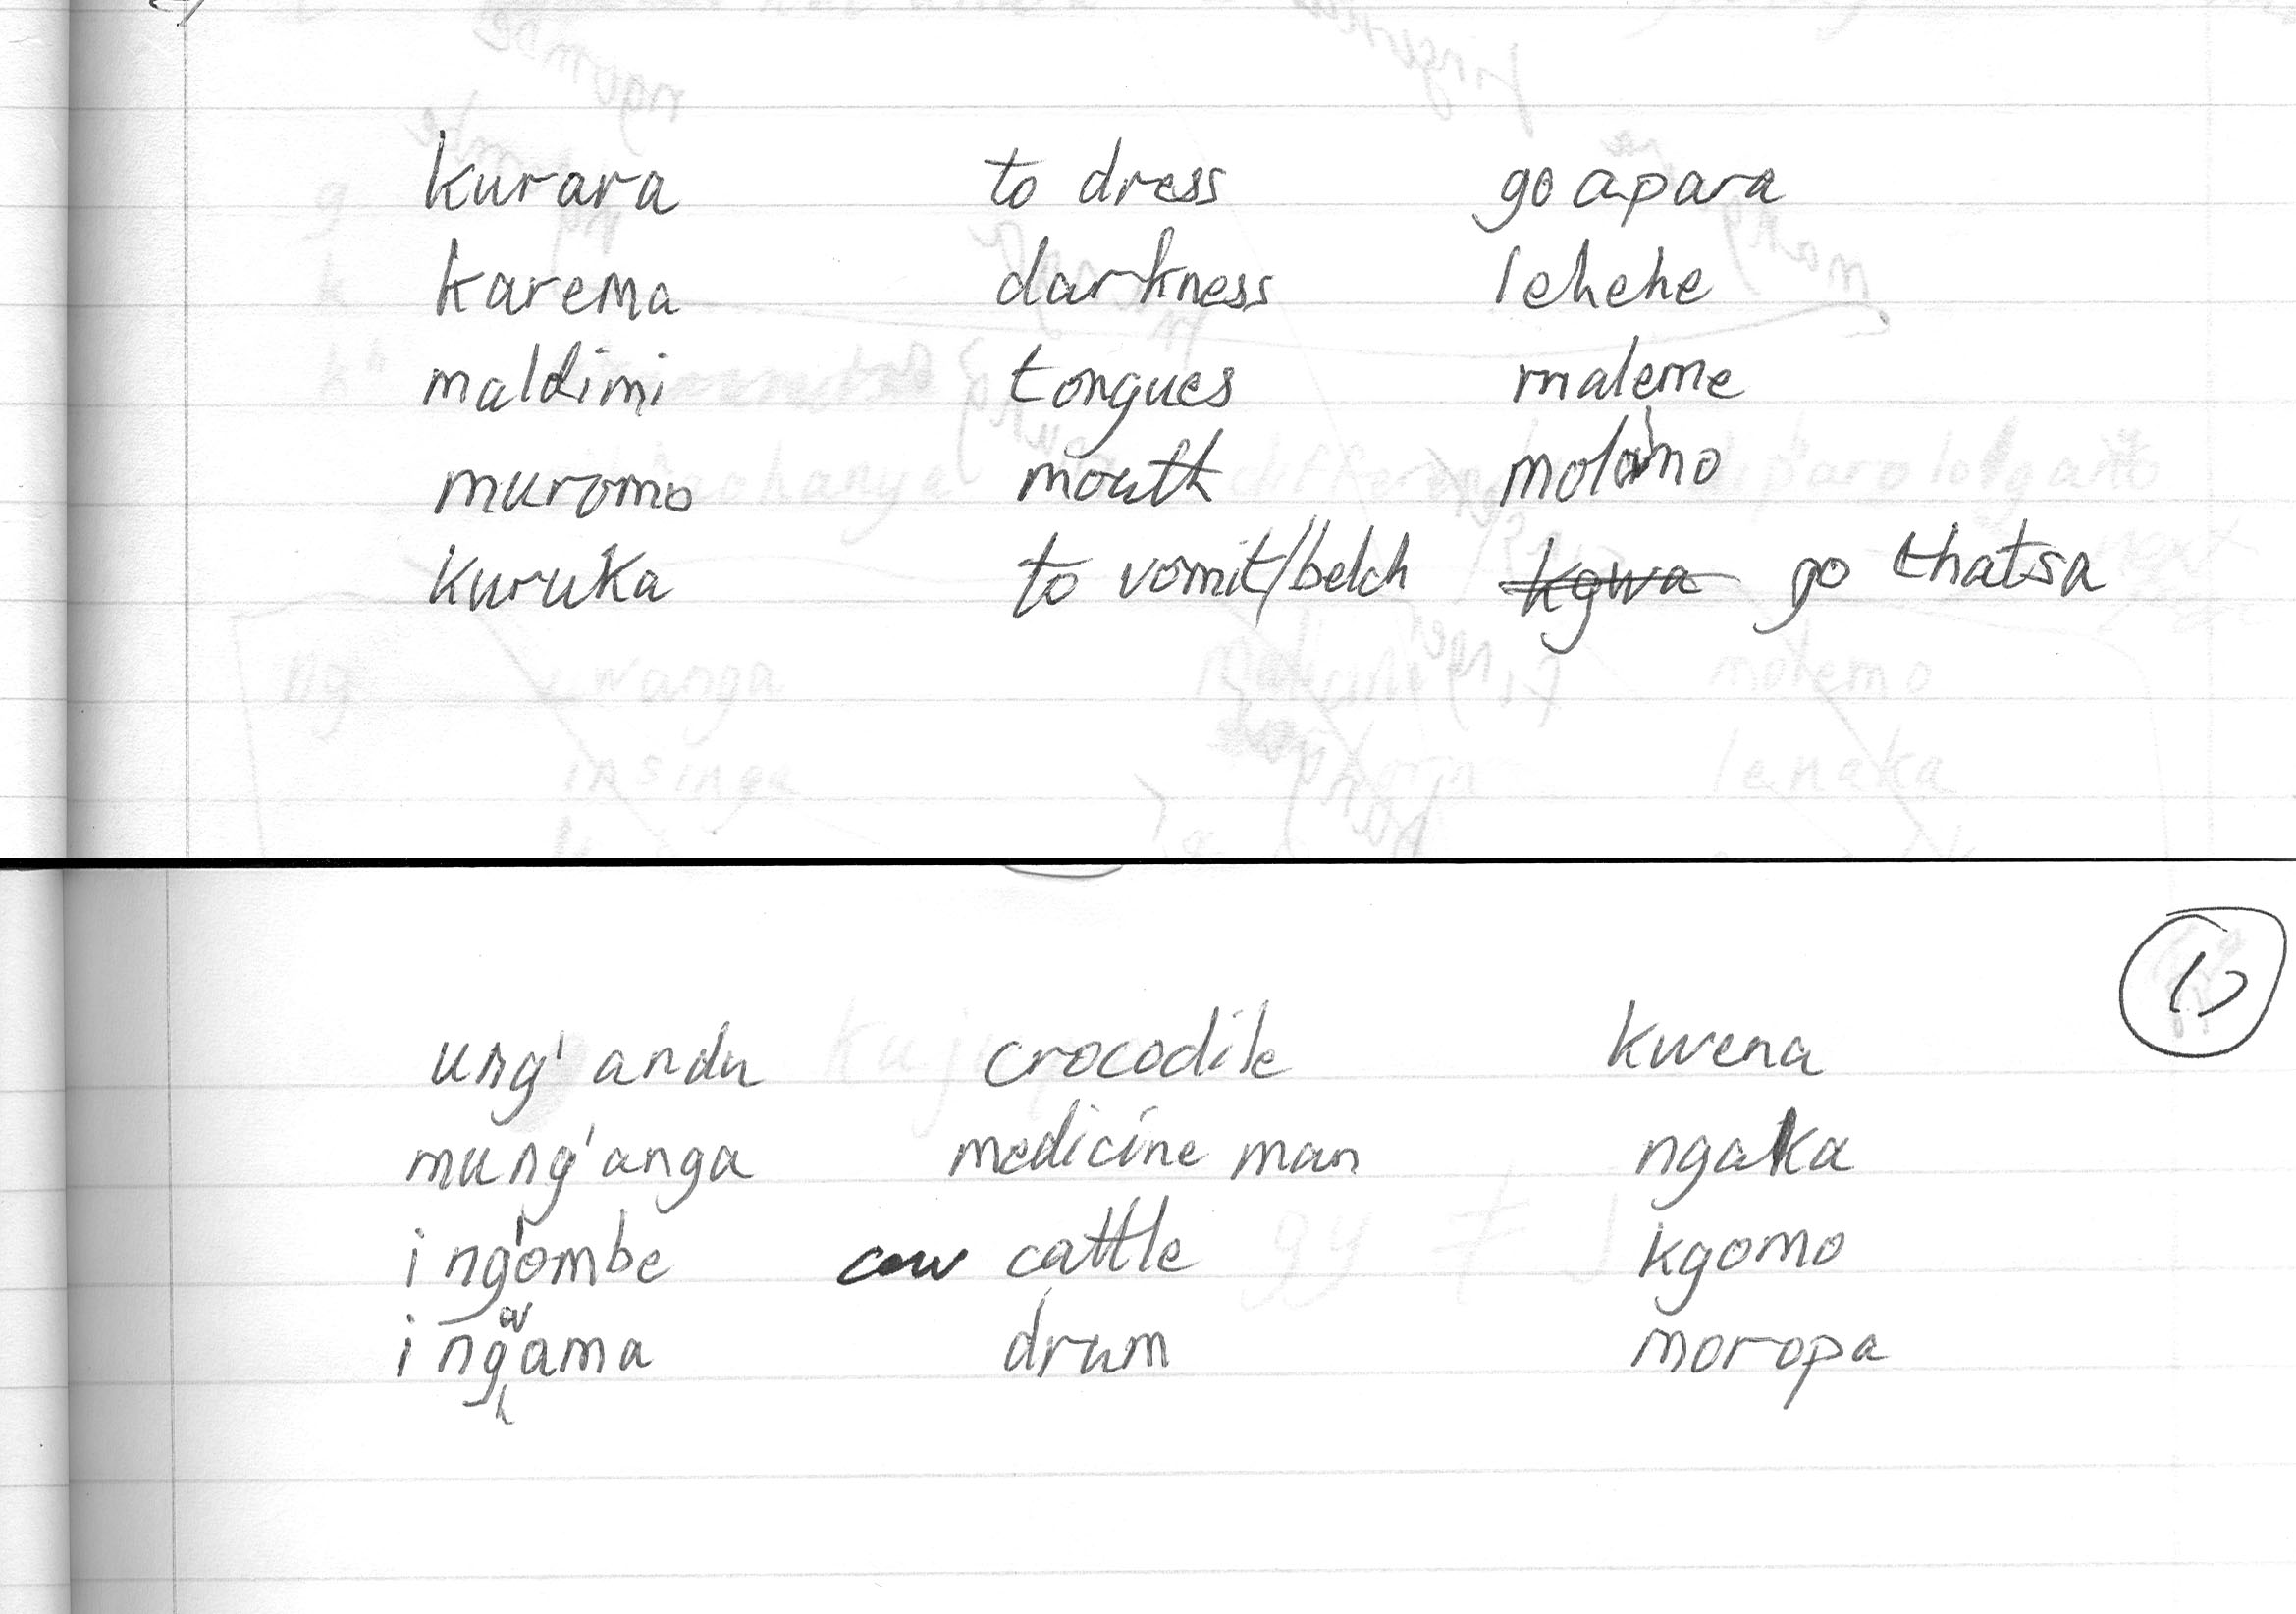 kurara to dress go apara
karema darkness lehehe
maldimi tongues maleme
muromo mouth molomo
kuruka to vomit/belch kgwa go thatsa
ung'andu crocodile kwena
mung'anga medicine man ngaka
ing'ombe cow cattle kgomo
ingama drum moropa